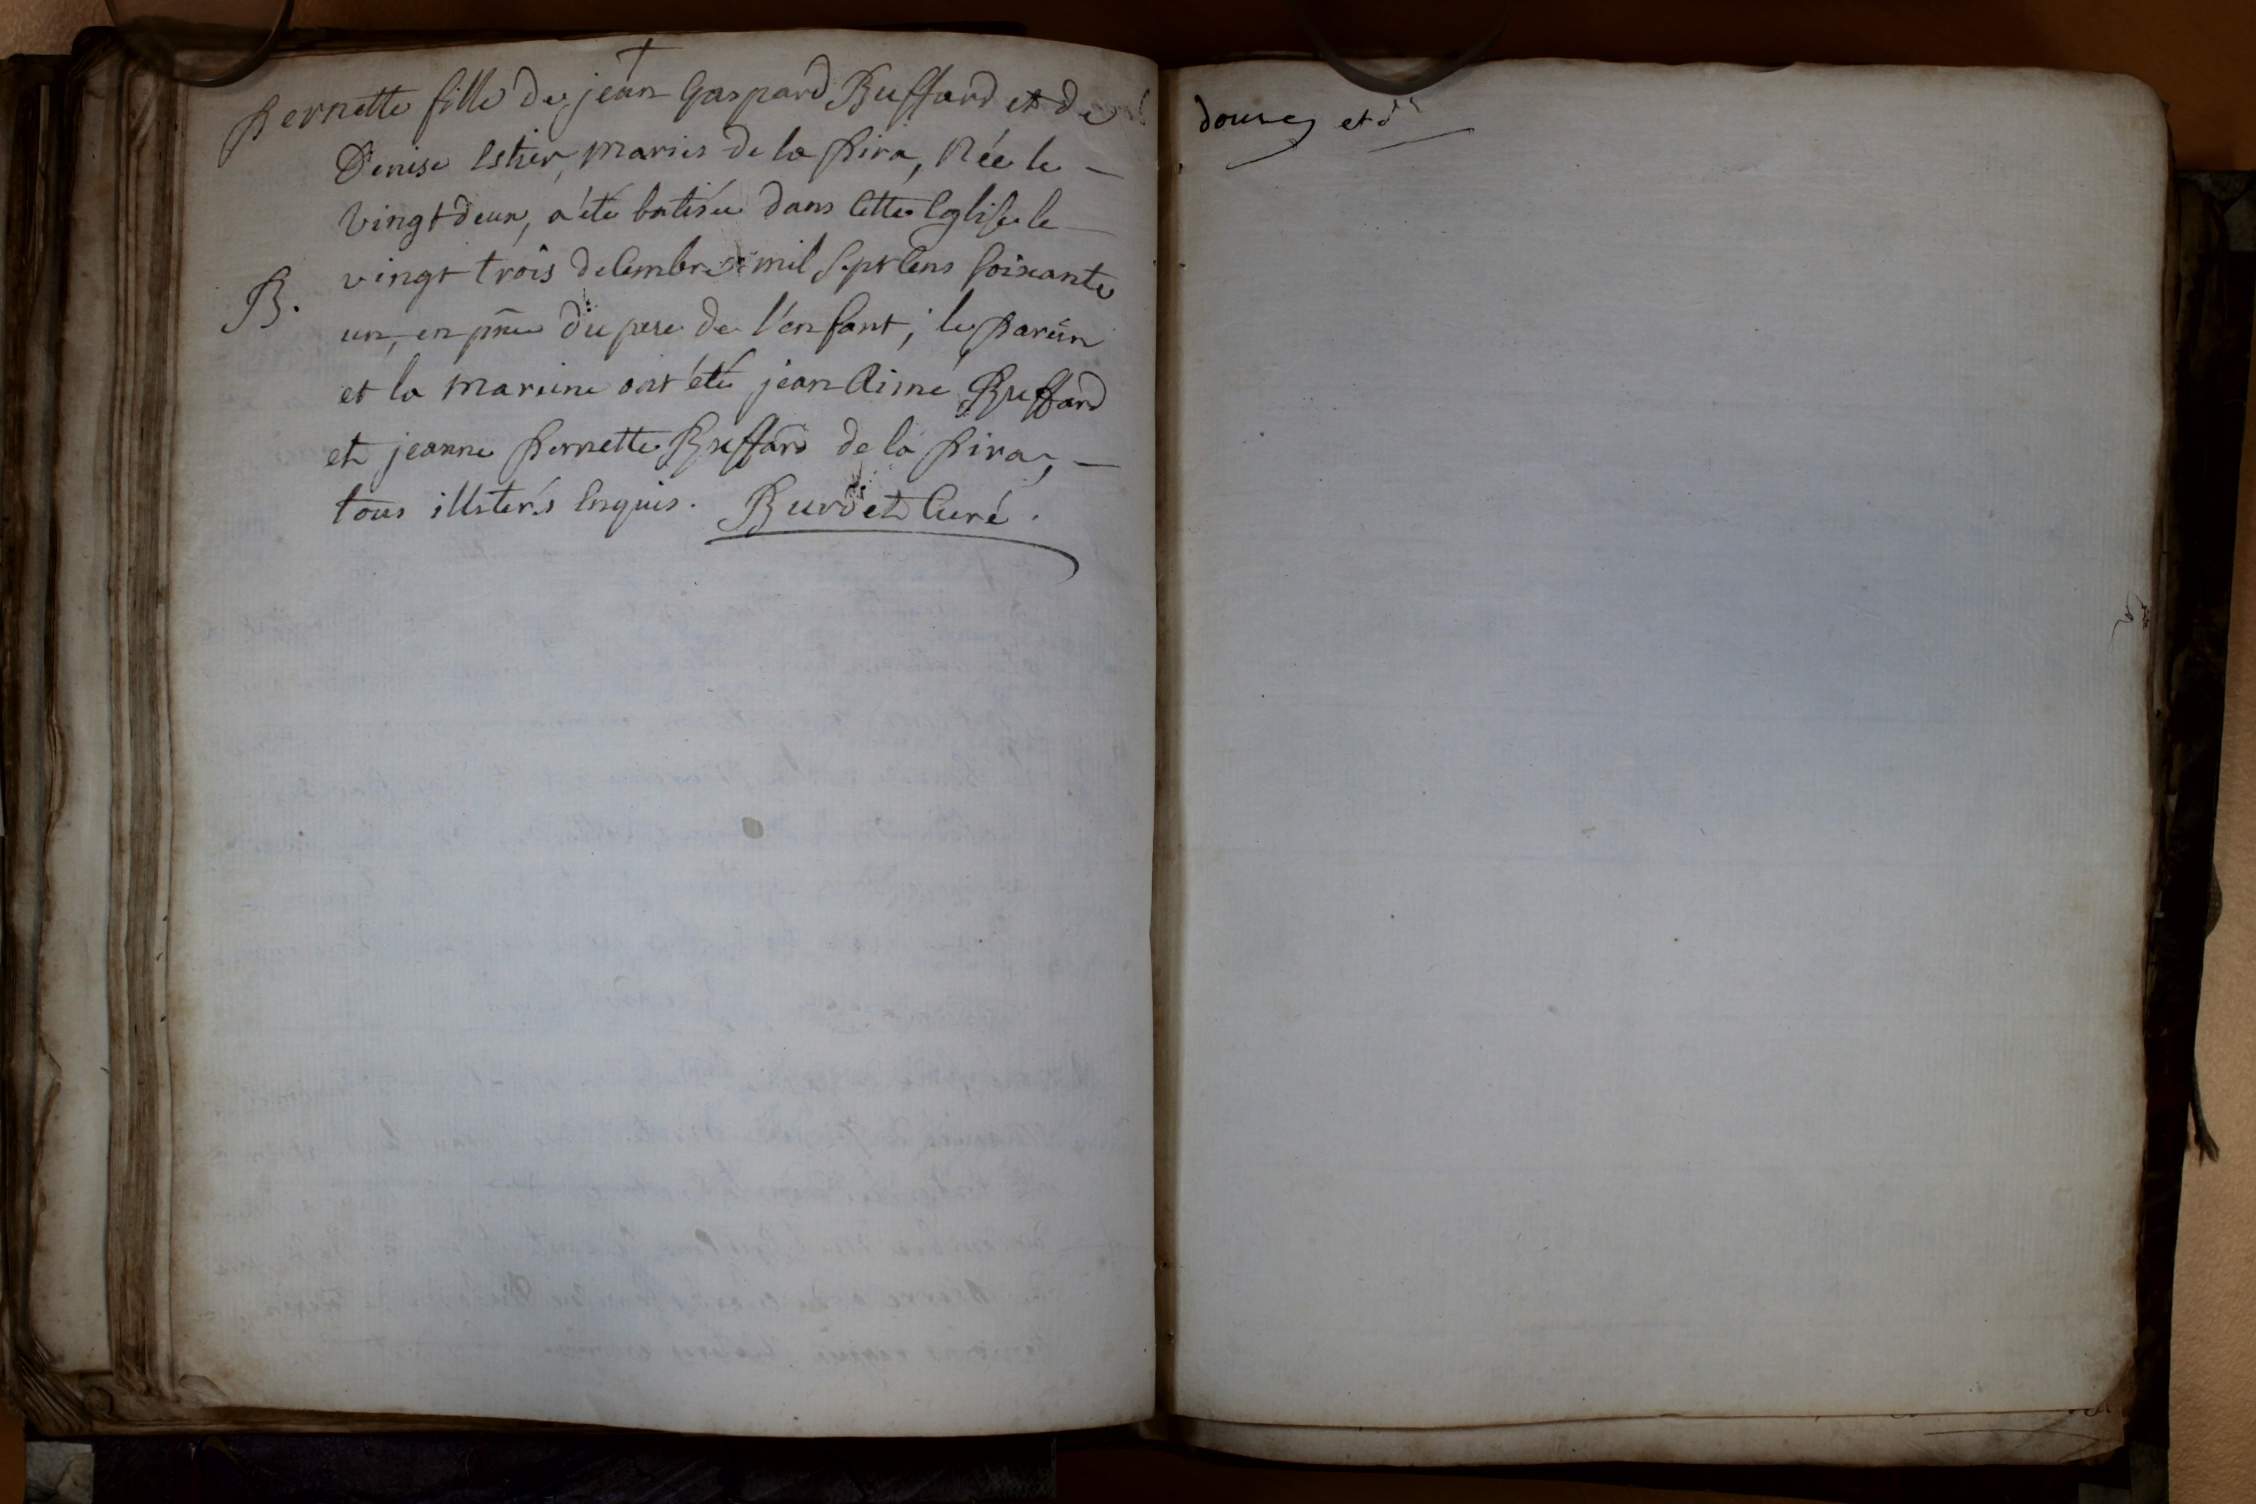 †
Pernette fille de jean Gaspard Buffard et de
Denise Estier, mariés de la Pira, Née le —
vingt deux, a été batisée dans cette Eglise le —
vingt trois decembre mil sept cens soixante
B.
un, en pñce du pere de l'enfant; le parein
et la mareine ont été jean Aimé Buffard
et jeanne Pernette Buffard de la Pira, —
tous illiterés enquis. Burdet Curé.
douze et d